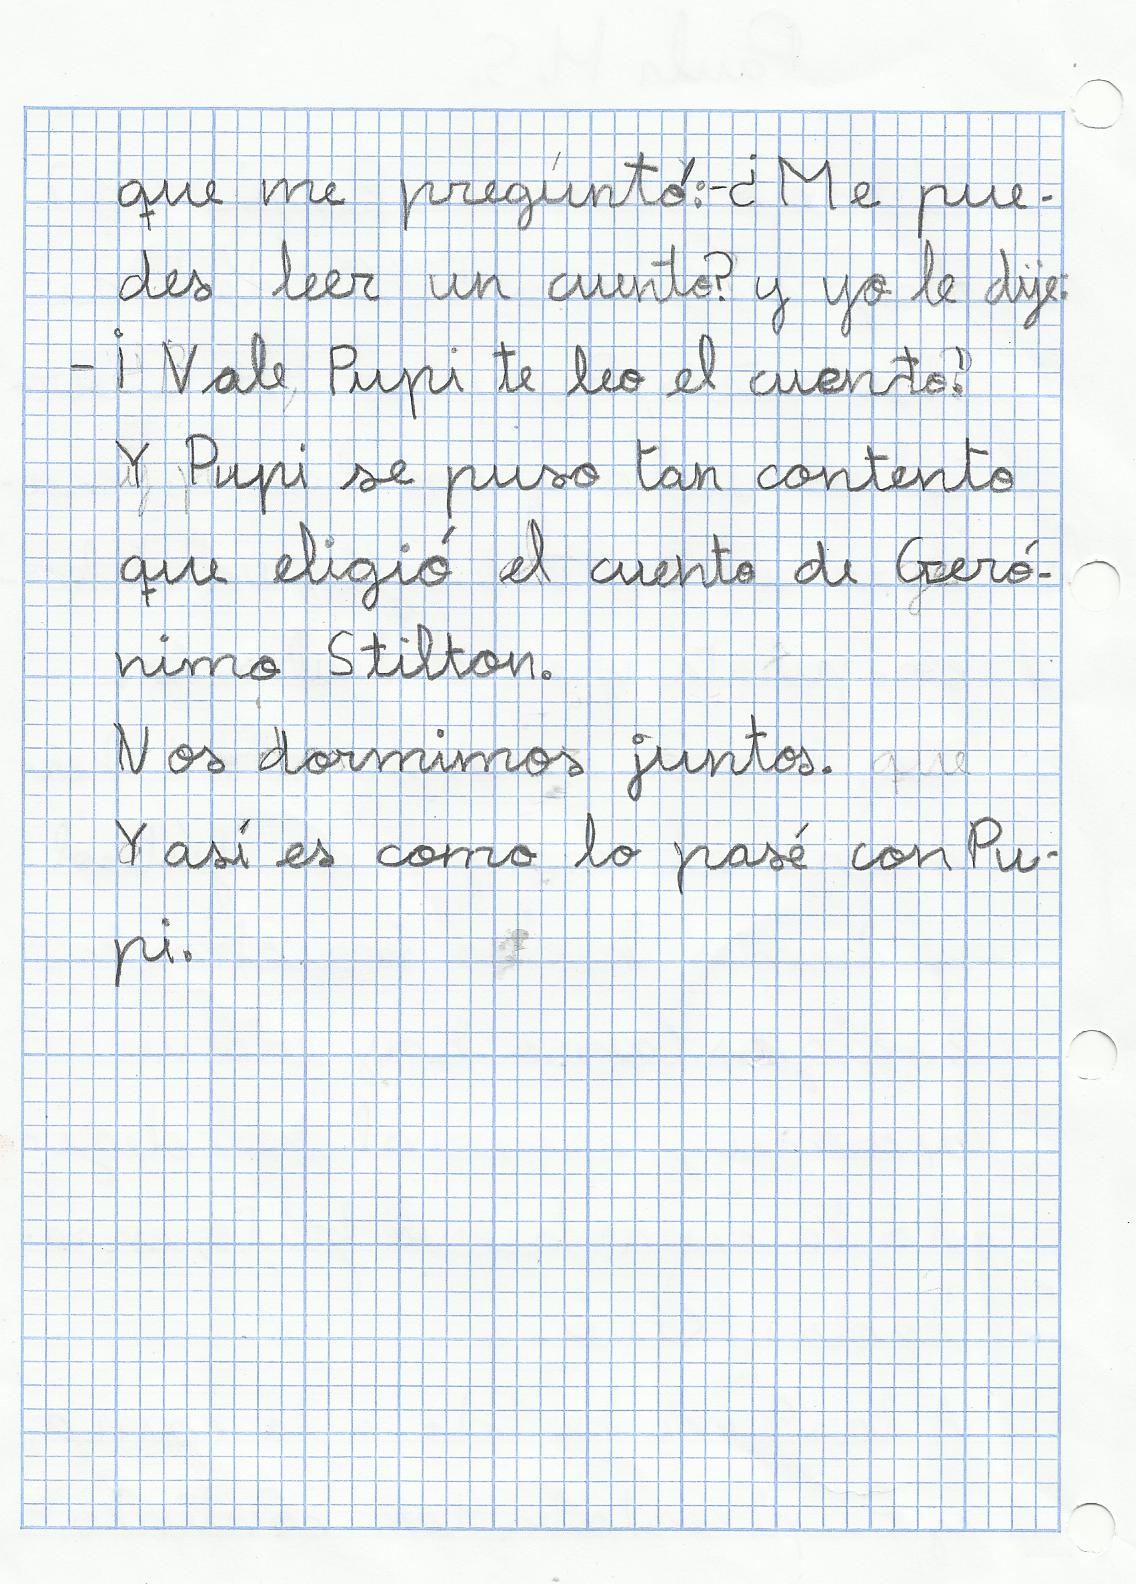 que me preguntó:-¿Me pue-
des leer un cuento? y yo le dije:
-¡Vale, Pupi te leo el cuento!
Y Pupi se puso tan contento
que eligió el cuento de Geró-
nimo Stilton.
Nos dormimos juntos.
Y así es como lo pasé con Pu-
pi.